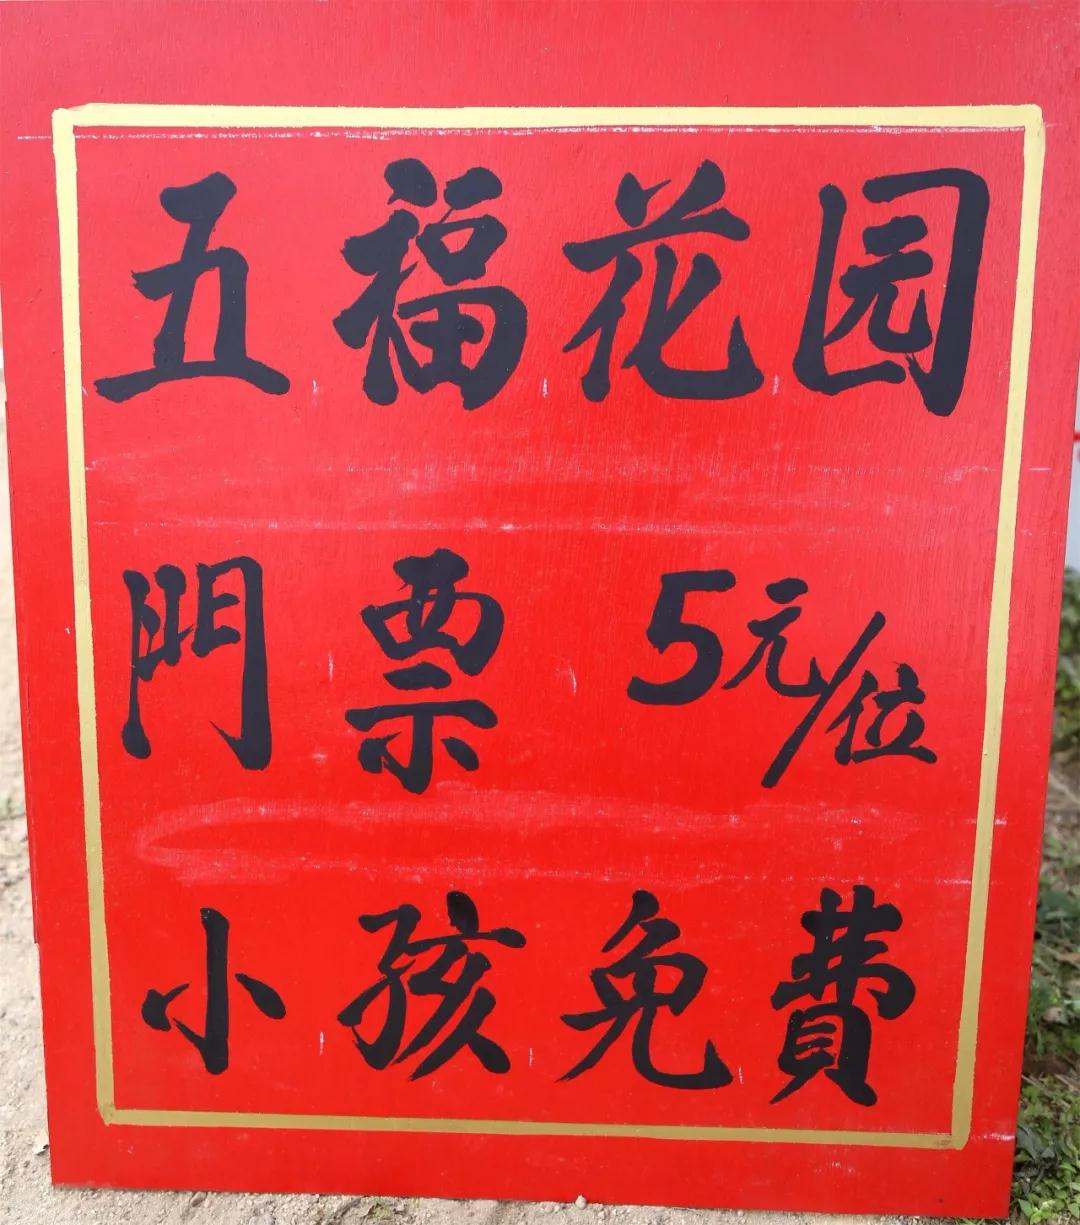 五福花园
門票 5元/位
小孩免費